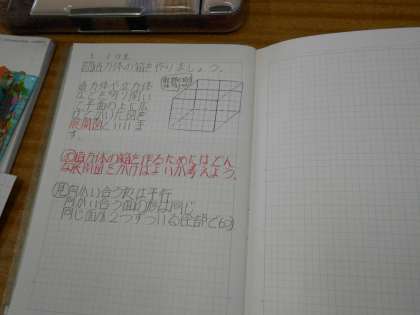 直方体の箱を作りましょう。
直方体や立方体
などを切り開い
て平面の上に広
げてかいた図を
展開図といいま
す。
直方体の箱を作るためにはどん
な展開図をかけばよいか考えよう。
向かい合う辺は平行
向かい合う面の形は同じ
同じ面が2つずつある(全部で6つ)